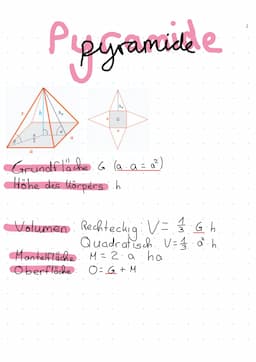 Pyramide
pyramide
Grundfläche G (a·a = a²)
Höhe des Körpers h
Volumen: Rechteckig: V = 1/3 G h
Quadratisch: V = 1/3 a² · h
Mantelfläche M = 2 · a ha
Oberfläche O = G + M